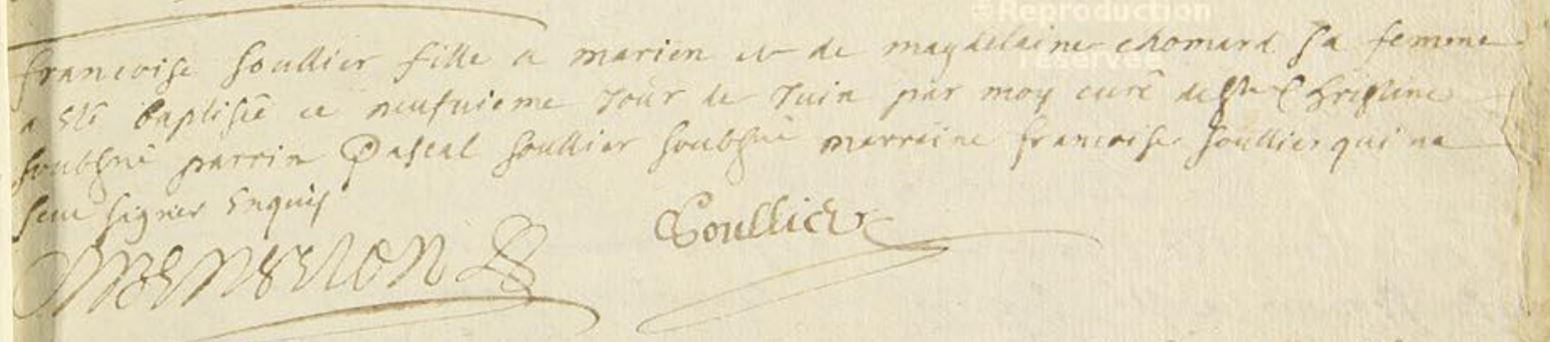 ©Reproduction réservée
francoise soullier fille a marien et de magdelaine chomard sa femme
a esté baptisée ce neufvieme jour de juin par moy curé de Ste Christine
soubsné parrin Pascal soullier soubsné marraine francoise soullier qui na
sceu signer enquis
Soullier